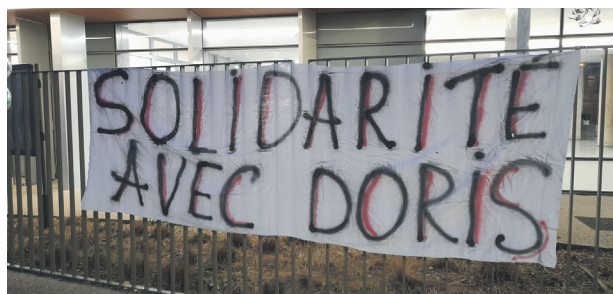 SOLiDARiTÉ
AVEC DORiS